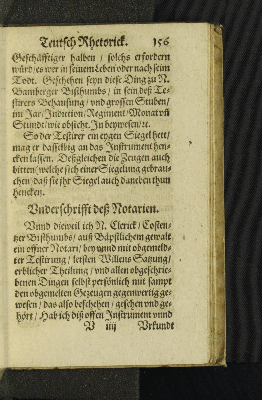 Teutsch Rhetorick. 156
Geschäfftiger halben / solchs erfordern
würd / es wer in seinem Leben oder nach seim
Todt. Geschehen seyn diese Ding zu N.
Bamberger Bisthumbs / in sein deß Te-
stirers Behausung / vnd grossen Stuben /
im Jar / Indiction / Regiment / Monat vñ
Stundt / wie obsicht. In beywesen / ꝛc.
So der Testirer ein eygen Siegel hett /
mag er dasselbig an das Instrument hen-
cken lassen. Deßgleichen die Zeugen auch
bitten / welche sich einer Siegelung gebrau-
chen / daß sie jhr Siegel auch daneben thun
hencken.
Vnderschrifft deß Notarien.
Vnnd dieweil ich N. Clerick / Costen-
tzer Bisthumbs / auß Bäpstlichem gewalt
ein offner Notari / bey vnnd mit obgemeld-
ter Testirung / letsten Willens Satzung /
erblicher Theilung / vnd allen obgeschrie-
benen Dingen selbst persönlich mit sampt
den obgemelten Gezeugen gegenwertig ge-
wesen / das also beschehen / gesehen vnd ge-
hört / Hab ich diß offen Instrument vnnd
V iiij Vrkundt